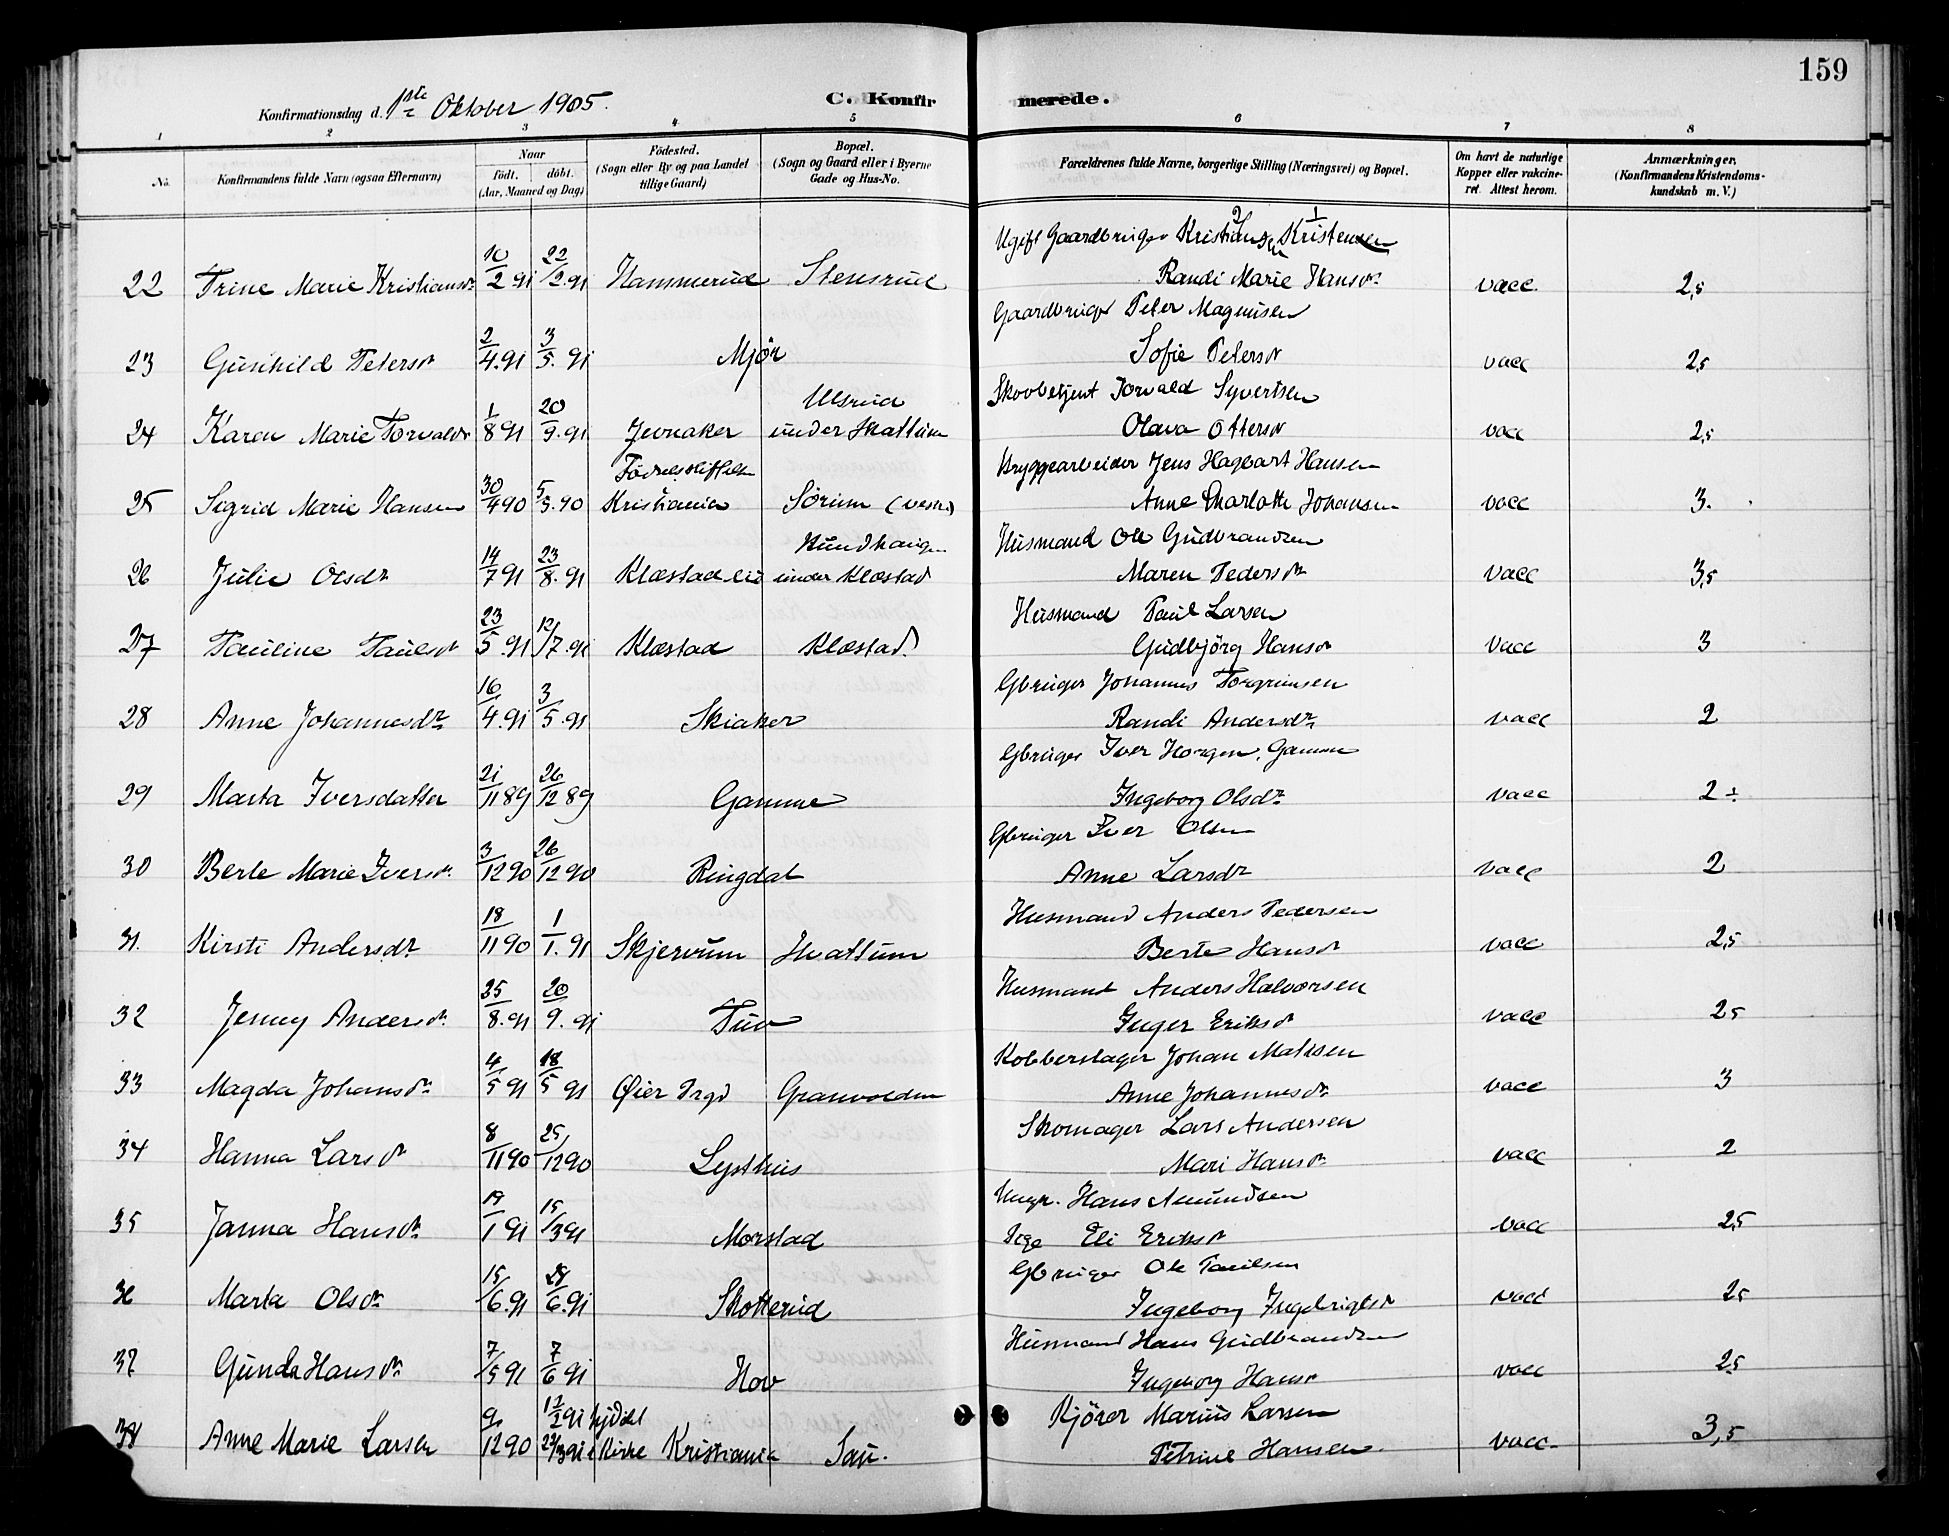 159
Konfirmationsdag d. 1ste Oktober 1905.
C. Konfirmerede.
1 2 3 4 5 6 7 8
No. Konfirmandens fulde Navn (ogsaa Efternavn) Naar født. døbt. (Aar, Maaned og Dag) Födested. (Sogn eller By og paa Landet tillige Gaard) Bopæl. (Sogn og Gaard eller i Byerne Gade og Hus-No. Forældrenes fulde Navne, borgerlige Stilling (Næringsvei) og Bopæl. Om havt de naturlige Kopper eller vakcineret. Attest herom. Anmærkninger. (Konfirmandens Kristendomskundskab m. V.)
Ugift Gaardbruger Kristiansen Kristensen
22 Trine Marie Kristiansdr 10/2 91 22/2 91 Hammerud Stensrud Randi Marie Hansdr vacc. 2,5
Gaardbruger Peter Magnusen
23 Gunhild Petersdr 2/4.91 3/5.91 Mjör Sofie Petersdr vacc 2,5
Skovbetjent Torvald Syvertsen
24 Karen Marie Torvaldsdr 1/8 91 20/9.91 Jevnaker Ulsrud under Hattum Olava Ottersdr vacc 2,5
Bryggearbeider Jens Hagbart Hansen
25 Sigrid Marie Hansen 30/4 90 5/5.90 Födselsstiftelsen Kristiania Sörum (vestre) Anne Charlotte Johansen vacc 3.
Husmand Ole Gudbrandsen
26 Julie Olsdr 14/7 91 23/8.91 Klæstad eie under Klæstad Maren Pedersdr vacc 3,5
Husmand Paul Larsen
27 Pauline Paulsdr 23/5.91 12/7.91 Klæstad Klæstad Gudbjörg Hansdr vacc 3
Gbruger Johannes Torgrimsen
28 Anne Johannesdr 16/4.91 3/5.91 Skiaker Randi Andersdr vacc 2
Gbruger Iver Horgen, Gamme
29 Marta Iversdatter 21/11 89 26/12 89 Gamme Ingeborg Olsdr vacc 2
Gbruger Iver Olsen
30 Berte Marie Iversdr 3/12 90 26/12 90 Ringdal Anne Larsdr vacc 2
Husmand Anders Pedersen
31. Kirsti Andersdr 18/11 90 1/1.91 Skjervum Hattum Berte Hansdr vacc 2,5
Husmand Anders Halvorsen
32 Jenny Andersdr 25/8.91 20/9.91 Tuv Inger Eriksdr vacc 2,5
Kobberslager Johan Matisen
33 Magda Johansdr 4/5 91 18/5 91 Øier Granvolden Anne Johannesdr vacc 3
Skomager Lars Andersen
34 Hanna Larsdr 8/11 90 25/12 90 Lysthus Mari Hansdr vacc 2
Ungk. Hans Amundsen
35 Janna Hansdr 19/1 91 15/3 91 Morstad Pige Eli Eriksdr vacc 2,5
Gbruger Ole Paulsen
36 Marta Olsdr 15/6.91 28/6.91 Skotterud Ingeborg Ingebrigtsdr vacc 2,5
Husmand Hans Gudbrandsen
37 Gunda Hansdr 7/5 91 7/6 91 Hov Ingeborg Hansdr vacc 2,5
Kjörer Marius Larsen
38 Anne Marie Larsen 9/12 90 Kirke Kristiania Sau. Petrine Hansen. vacc. 3,5